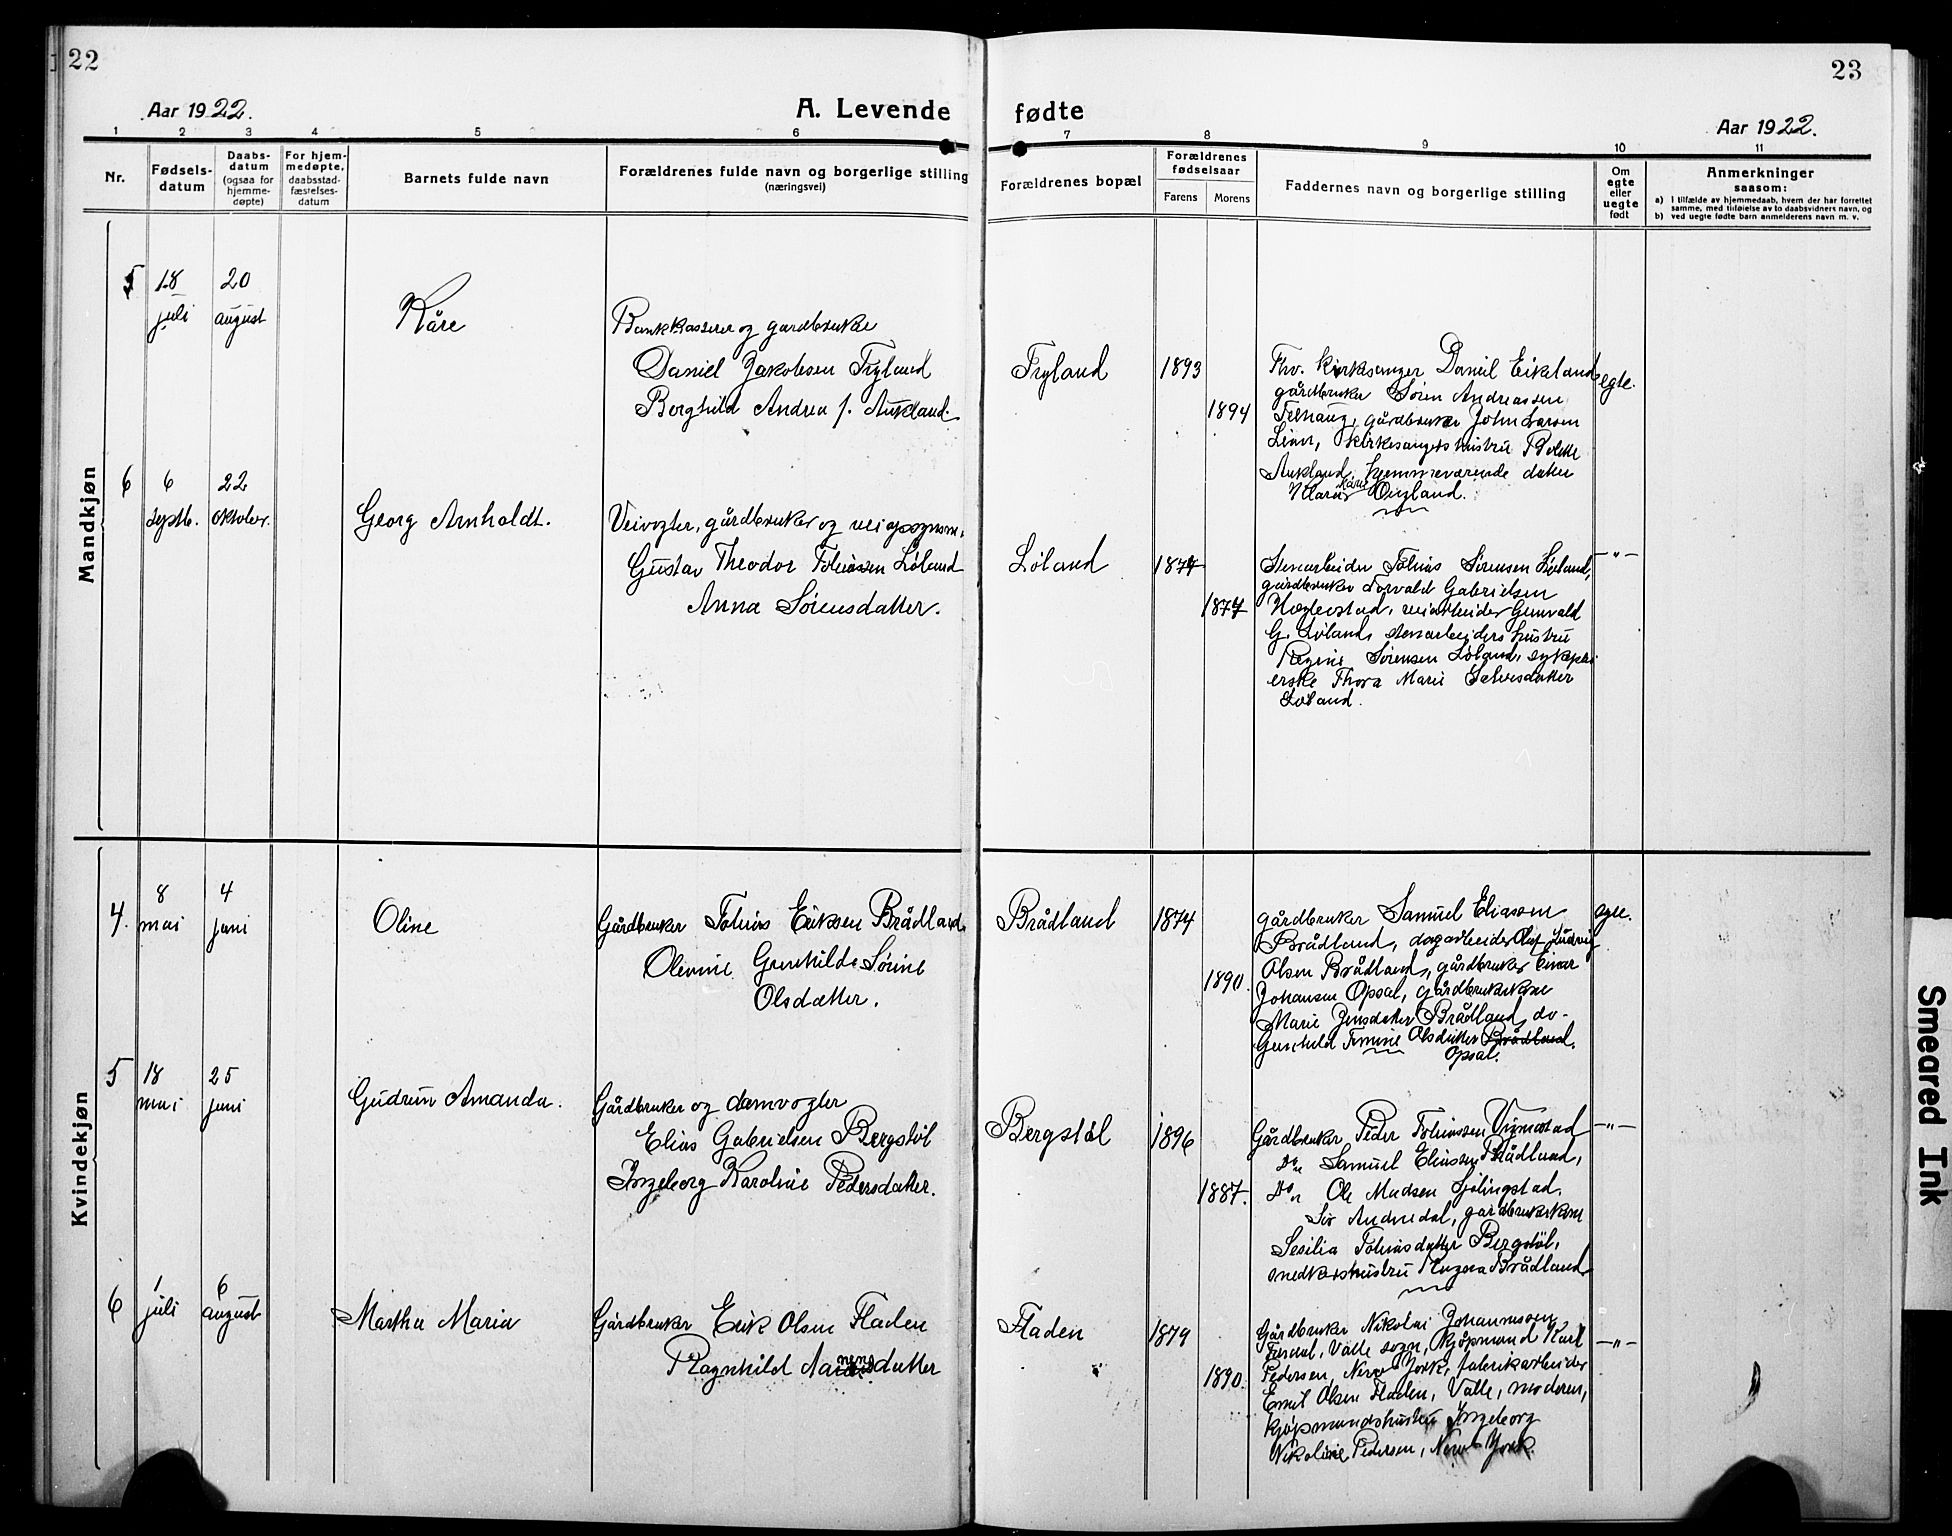 22
Aar 1922.
A. Levende
1 2 3 4 5 6
Nr.
Fødsels-
datum
Daabs-
datum
(ogsaa for
hjemme-
døpte)
For hjem-
medøpte,
daabsstad-
fæstelses-
datum
Barnets fulde navn
Forældrenes fulde navn og borgerlige stilling
(næringsvei)
Mandkjøn
5
18
juli
20
august
Kåre
Bankkasserer og gardbruker
Daniel Jakobsen Tryland
Borghild Andrea f. Aukland.
6
6
septb.
22
oktober.
Georg Arnholdt.
Veivogter, gårdbruker og
Gustav Theodor Tobiassen Løland
Anna Sørensdatter.
Kvindekjøn
4.
8
mai
4
juni
Oline
Gårdbruker Tobias Eriksen Brådland
Olevine Gunhilde Sørine
Olsdatter.
5
18
mai
25
juni
Gudrun Amanda.
Gårdbruker og damvogter
Elias Gabrielsen Bergstøl
Ingeborg Karoline Pedersdatter.
6
1
juli
6
august
Martha Maria
Gårdbruker Erik Olsen Fladen
Ragnhild
23
fødte
Aar 1922.
7 8 9 10 11
Forældrenes bopæl
Forældrenes
fødselsaar
Farens Morens
Faddernes navn og borgerlige stilling
Om
egte
eller
uegte
født
Anmerkninger
saasom:
a) I tilfælde av hjemmedaab, hvem der har forrettet
samme, med tilføielse av to daabsvidners navn, og
b) ved uegte fødte barn anmelderens navn m. v.
Tryland
1893
1894
Fhv. kirksanger Daniel Eikeland
gårdbruker Søren Andreassen
gårdbruker John Larsen
kirkesangers hustru
Aukland, hjemmeværende datter
Marie
egte.
Løland
1877
Stenarbeider Tobias Sørensen Løland,
gårdbruker Torvald Gabrielsen
Hægbostad, veiarbeider Gunvald
G. Løland, stenarbeiders hustru
Regine Sørensen Løland,
erske Thora Marie
Løland.
— " —
Brådland
1874
1890.
gårdbruker Samuel Eliassen
Brådland, dagarbeider Olaf Ludvig
Olsen Brådland, gårdbruker Einar
Johansen Opsal, gårdbrukerkone
Marie Jensdatter Brådland, do-
Gunhild Olsdatter Brådland.
Opsal.
egte.
Bergstøl
1896
1887.
Gårdbruker Peder Tobiassen Vigmostad
Do Samuel Eliassen Brådland,
Do Ole
gårdbrukerkone
Sesilia Tobiasdatter Bergstøl,
snedkershustru Brådland
— " —
Fladen
1879
1890.
Gårdbruker Nikolai Johannessen
Valle sogn, kjøpmand Karl
Pedersen, New York, fabrikarbeider
Emil Olsen Fladen, Valle, moderen,
kjøpmandshustru Ingeborg
Nikoline Pedersen, New York.
— " —
Smeared Ink